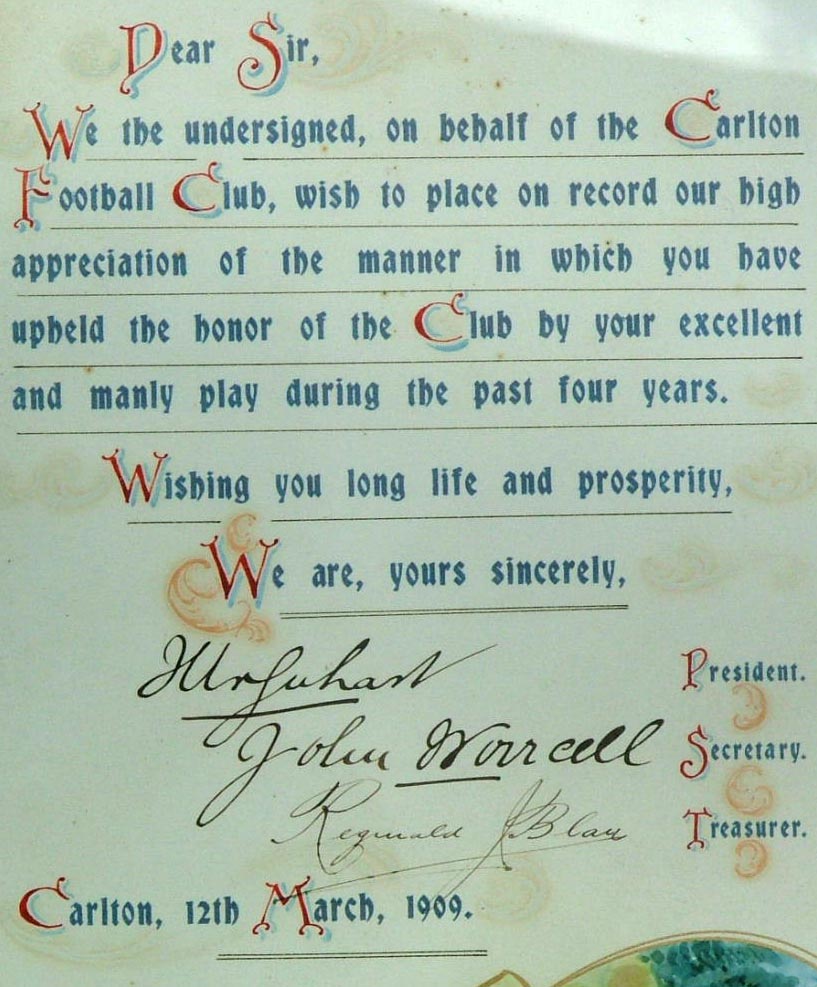 Dear Sir,
We the undersigned, on behalf of the Carlton
Football Club, wish to place on record our high
appreciation of the manner in which you have
upheld the honor of the Club by your excellent
and manly play during the past four years.
Wishing you long life and prosperity,
We are, yours sincerely,
Urquhart President.
John Worrall Secretary.
Reginald J Blau Treasurer.
Carlton, 12th March, 1909.